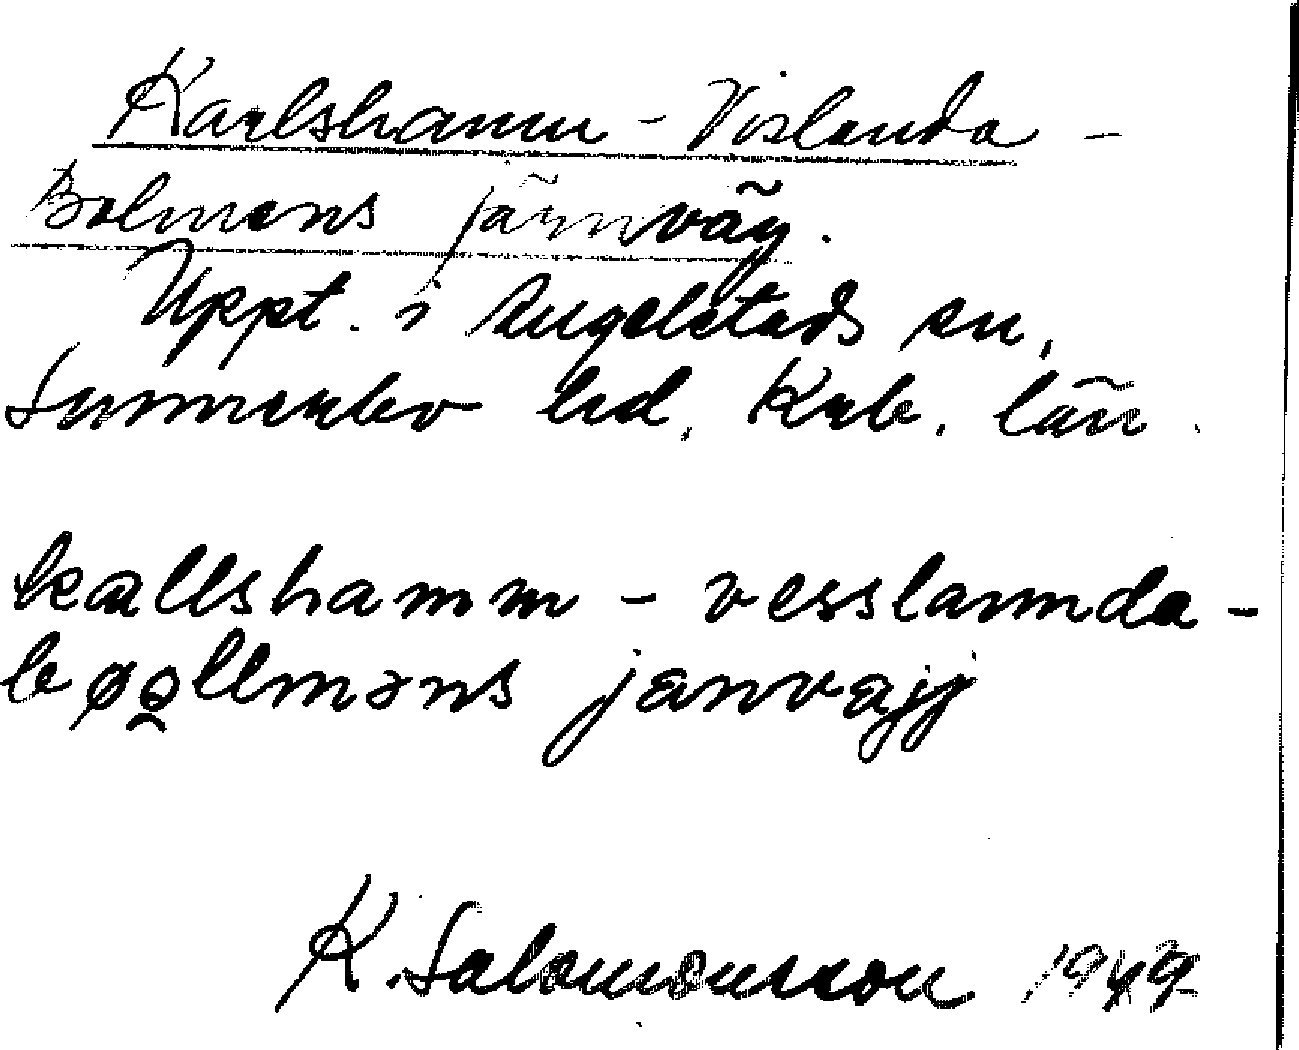 Karlshamn - Vislanda -
Bolmens järnväg.
Uppt. i Angelstads sn,
Sunnerbo hd, Krb. län.
kallshamm - vesslannda -
bøo̯llməns janvajj
K. Salomonsson 1949